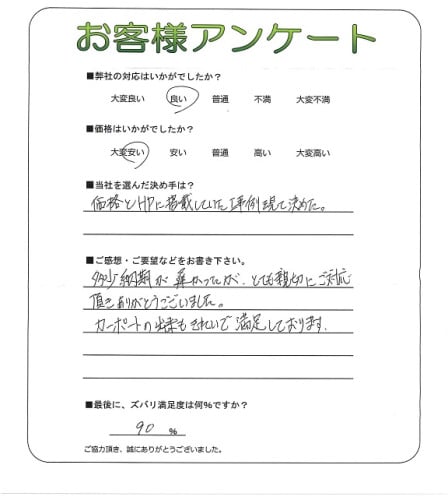 お客様アンケート
■弊社の対応はいかがでしたか?
大変良い 良い 普通 不満 大変不満
■価格はいかがでしたか?
大変安い 安い 普通 高い 大変高い
■当社を選んだ決め手は?
価格とHPに掲載していた事例見て決めた。
■ご感想・ご要望などをお書き下さい。
多少納期が かかったが、とても親切にご対応
頂きありがとうございました。
カーポートの出来もきれいで満足しております。
■最後に、ズバリ満足度は何%ですか?
90 %
ご協力頂き、誠にありがとうございました。